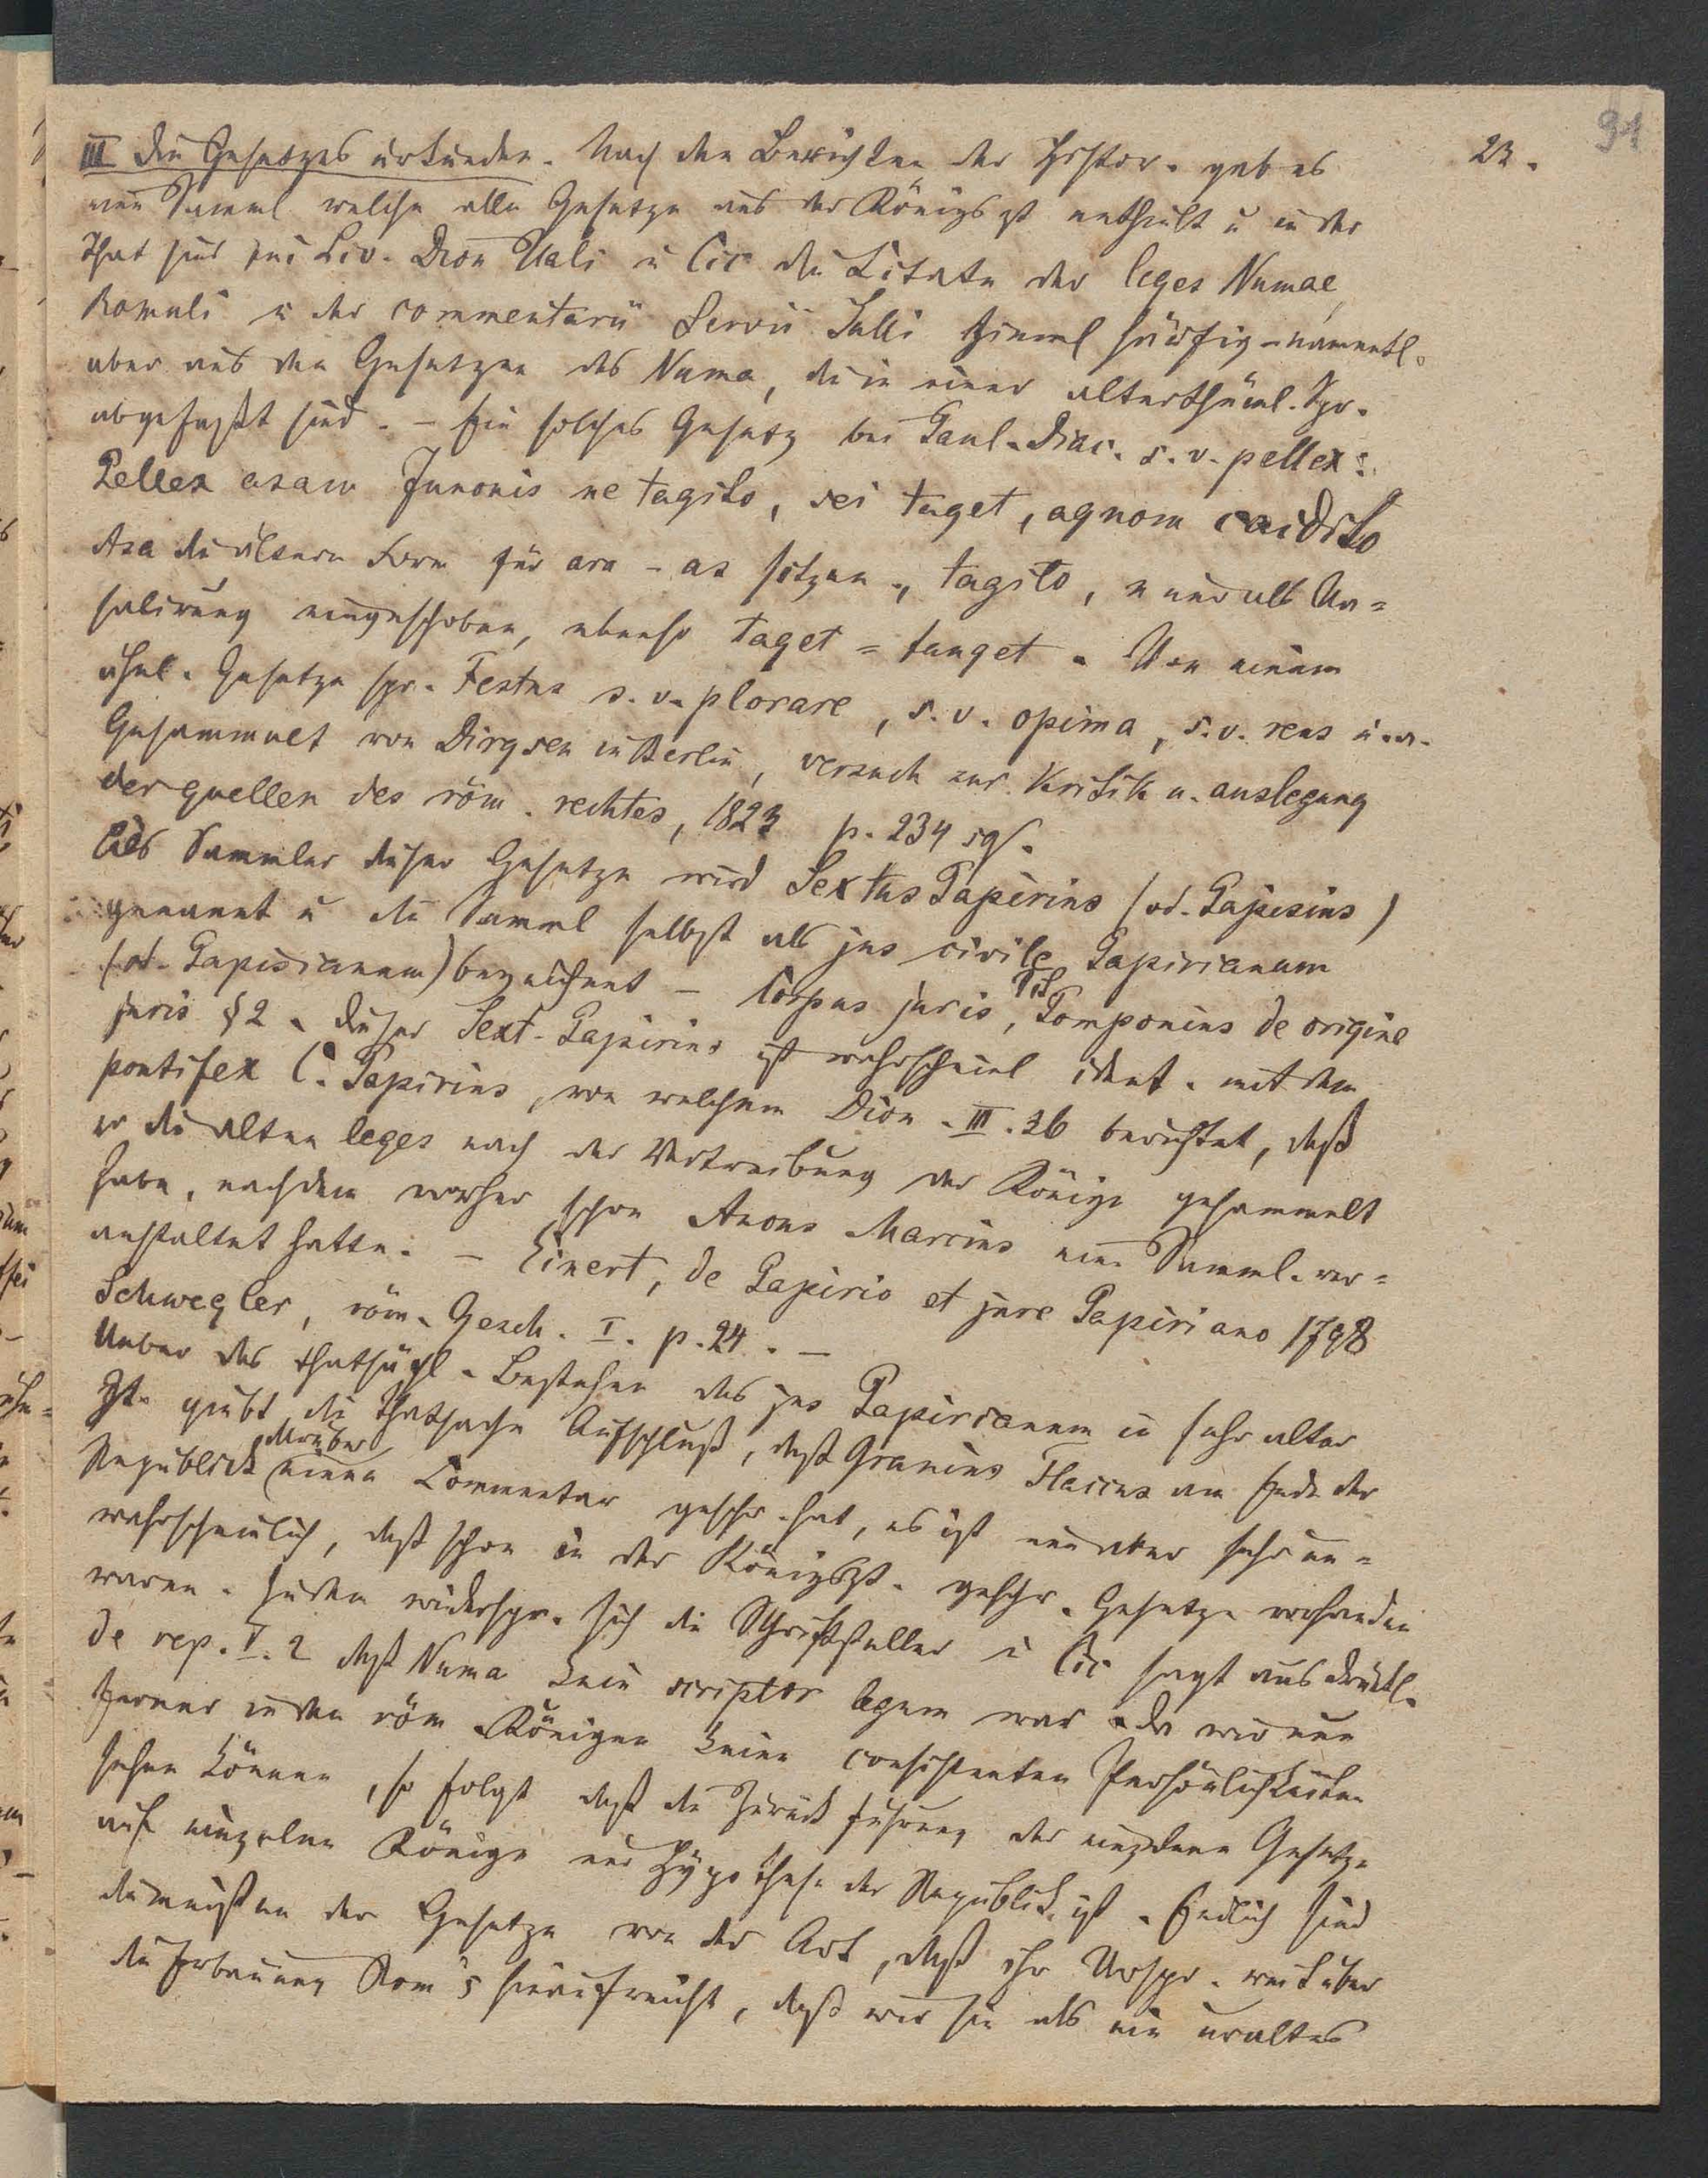 91
23.
III Die Gesetzesurkunden. Nach den Berichten der Histor. gab es
eine Samml welche alle Gesetze aus der Königszt enthielt u in der
That sind bei Liv. Dion Hali u Cic die Citate der leges Numae,
Romuli u der commentarii Servii Tulli ziemml häufig – namentl.
aber aus den Gesetzen des Numa, die in einer alterthüml. Spr.
abgefaßt sind. – Ein solches Gesetz bei Paul. Diac. s. v. pellex:
Pellex asam Junonis ne tagito, sei taget, agnom caidito
Asa die ältere Form für ara – as sitzen., tagito, n nur als Na=
salirung eingeschoben, ebenso taget = tanget. Von einem
ähnl. Gesetze spr. Festus s. v. plorare, s. v. opima, s. v. reus u. a.
Gesammelt von Dirgsen in Berlin, versuch zur Kritik u. auslegung
der quellen des röm. rechtes, 1823 p. 234 sqf.
Als Sammler dieser Gesetze wird Sextus Papirius (od. Papisius)
genannt u die Samml selbst als jus civile Papirianum
(od. Papisianum) bezeichnet – Corpus juris, Tit Pomponius de origine
juris § 2. Dieser Sext. Papirius ist wahrscheinl ident. mit dem
pontifex C. Papirius, von welchem Dion. III. 36 berichtet, daß
er die alten leges nach der Vertreibung der Könige gesammelt
habe, nachdem vorher schon Ancus Marcius eine Samml. ver=
anstaltet hatte. – Einert, de Papirio et jure Papiriano 1798
Schwegler, röm. Gesch. I. p. 24. –
Ueber das thatsächl. Bestehen des jus Papirianum in sehr alter
Zt. giebt die Thatsache Aufschluß, daß Granius Flaccus am Ende der
Republick darüber einen Commentar geschr. hat, es ist nun aber sehr un=
wahrscheinlich, daß schon in der Königszt. geschr. Gesetze vorhanden
waren. Zudem widerspr. sich die Schriftsteller u Cic sagt ausdrückl.
de rep. V. 2 daß Numa kein scriptor legum war. da wir nun
ferner in den röm. Königen keine consistenten Persönlichkeiten
sehen können, so folgt daß die Zurückführung der einzelnen Gesetze
auf einzelne Könige nur Hypothese der Republick ist. Endlich sind
die meisten der Gesetze von der Art, daß ihr Urspr. weit über
die Erbauung Rom's hinaufreicht, daß wir sie als ein uraltes